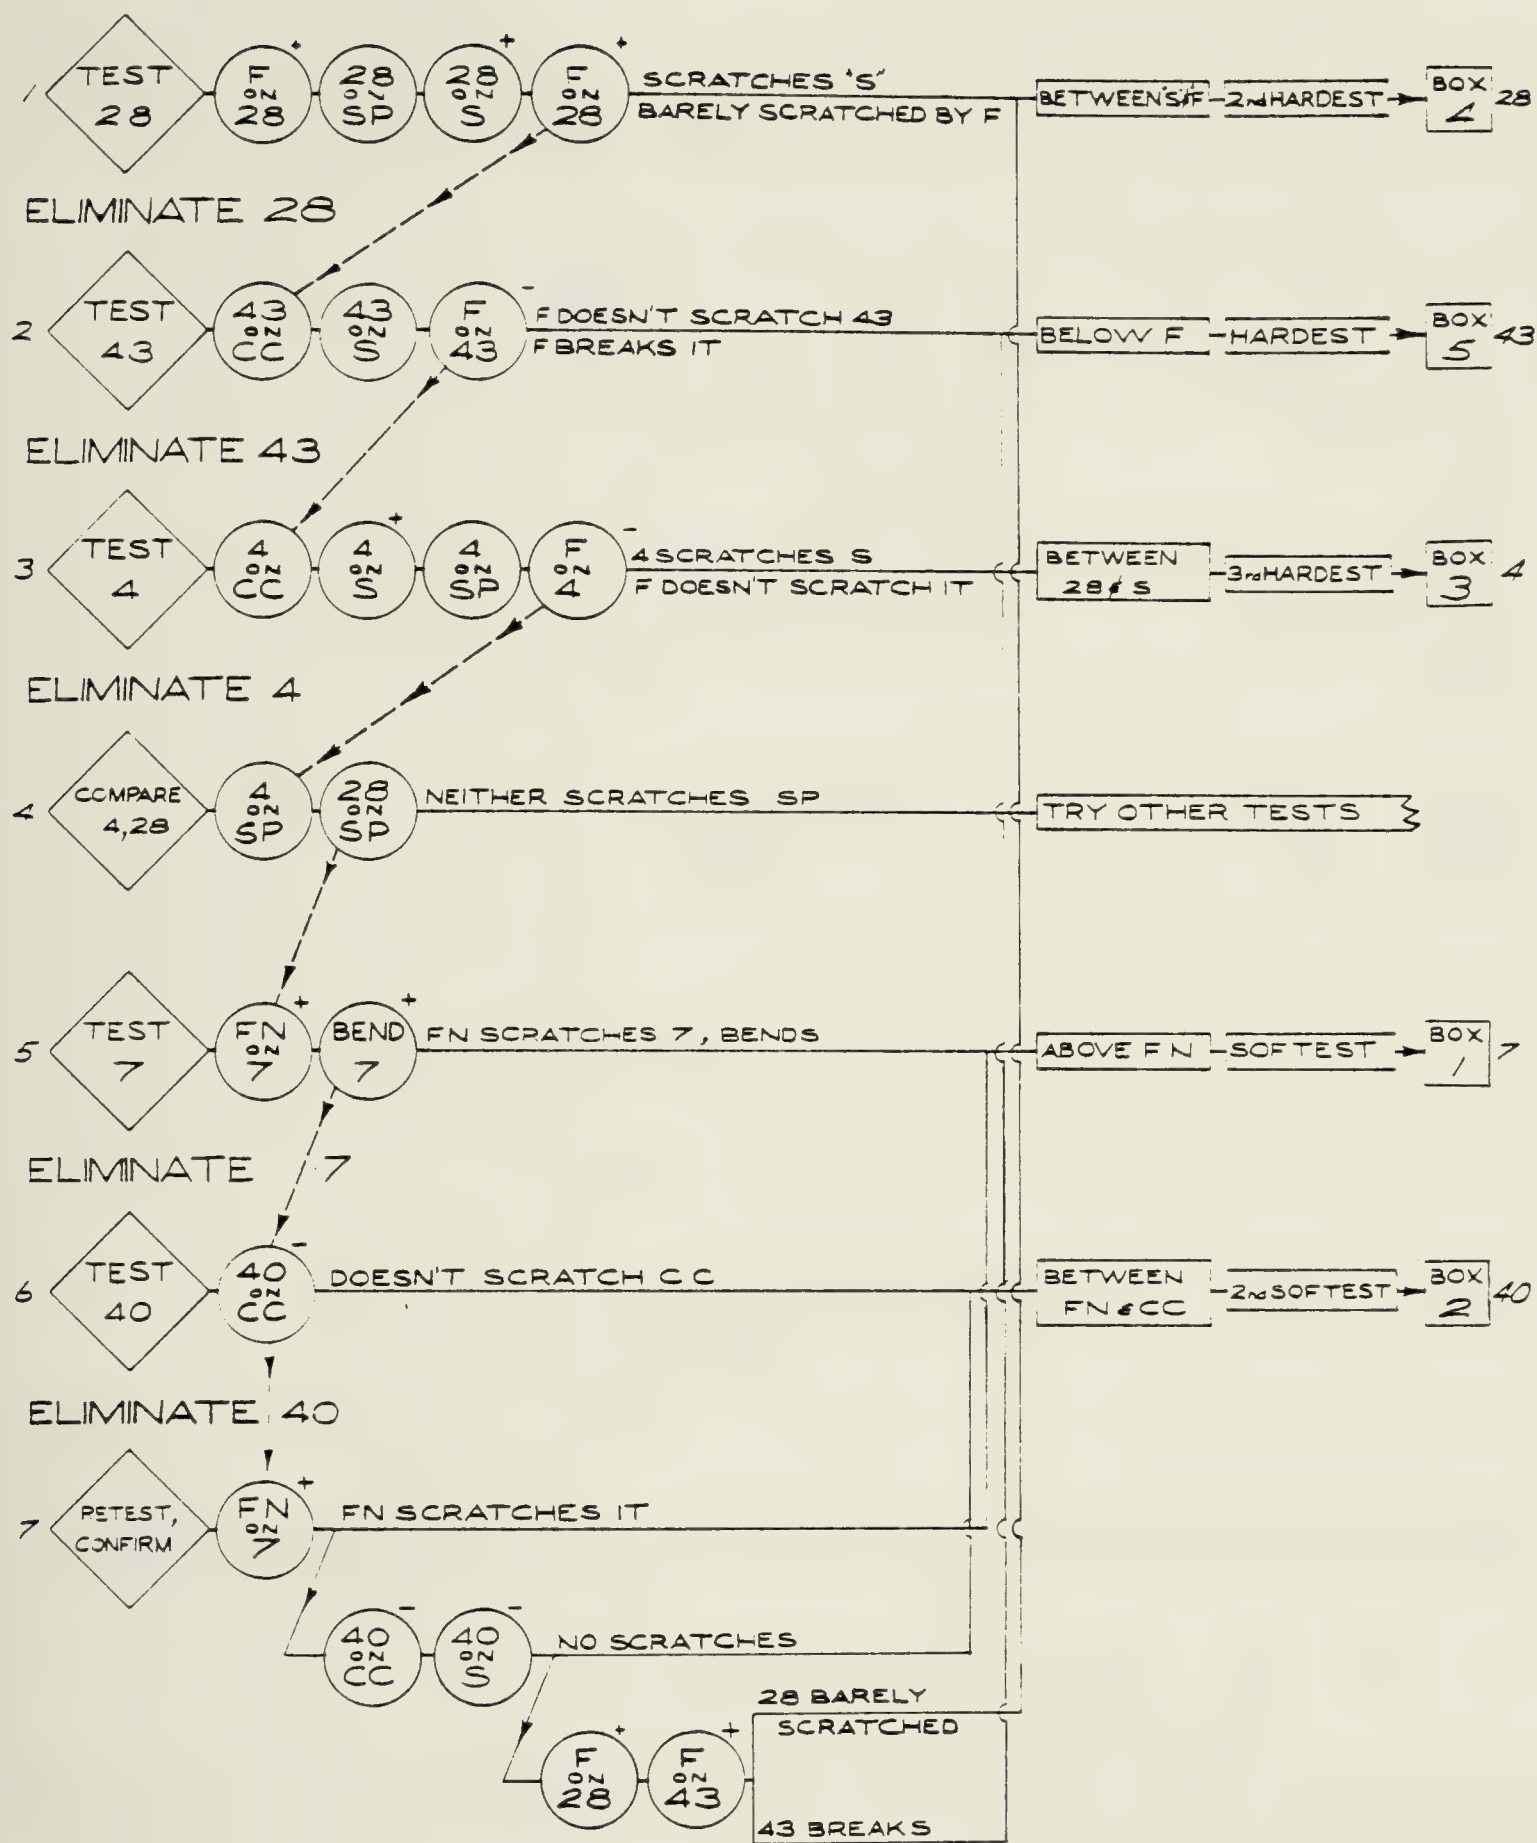 1
TEST
28
F
ON
28
+
28
ON
SP
28
ON
S
+
F
ON
28
+
SCRATCHES 'S'
BARELY SCRATCHED BY F
BETWEEN S & F
2nd HARDEST
BOX
4
28
ELIMINATE 28
2
TEST
43
43
ON
CC
43
ON
S
F
ON
43
-
F DOESN'T SCRATCH 43
F BREAKS IT
BELOW F
HARDEST
BOX
5
43
ELIMINATE 43
3
TEST
4
4
ON
CC
4
ON
S
+
4
ON
SP
F
ON
4
-
4 SCRATCHES S
F DOESN'T SCRATCH IT
BETWEEN
28 & S
3rd HARDEST
BOX
3
4
ELIMINATE 4
4
COMPARE
4,28
4
ON
SP
28
ON
SP
NEITHER SCRATCHES SP
TRY OTHER TESTS
5
TEST
7
FN
ON
7
+
BEND
7
+
FN SCRATCHES 7, BENDS
ABOVE FN
SOFTEST
BOX
1
7
ELIMINATE 7
6
TEST
40
40
ON
CC
-
DOESN'T SCRATCH CC
BETWEEN
FN & CC
2nd SOFTEST
BOX
2
40
ELIMINATE 40
7
RETEST,
CONFIRM
FN
ON
7
+
FN SCRATCHES IT
40
ON
CC
-
40
ON
S
-
NO SCRATCHES
F
ON
28
+
F
ON
43
+
28 BARELY
SCRATCHED
43 BREAKS